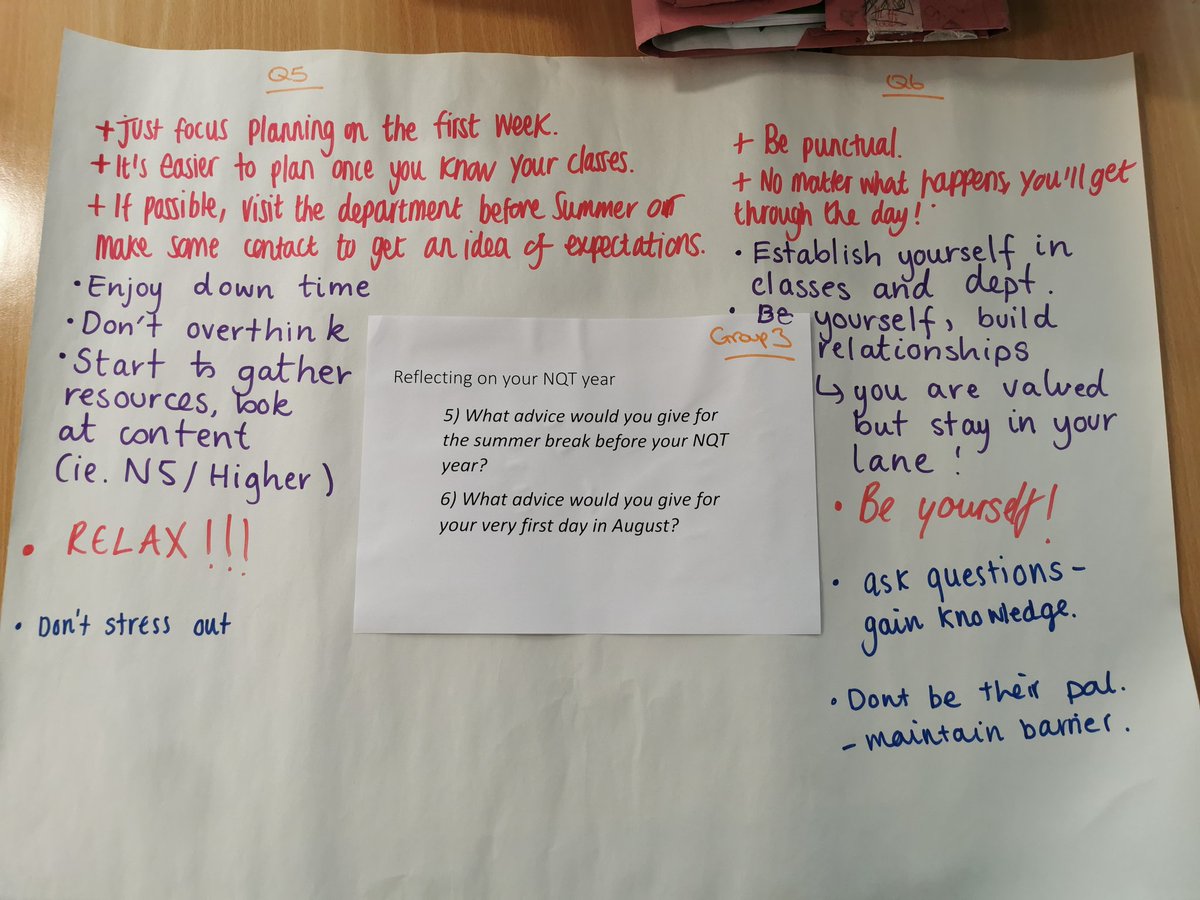 Q5
+ Just focus planning on the first week.
+ It's easier to plan once you know your classes.
+ If possible, visit the department before Summer or
make some contact to get an idea of expectations.
• Enjoy down time
• Don't overthink
• Start to gather
resources, look
at content
(ie. N5/Higher)
• RELAX!!!
• Don't stress out
Group 3
Reflecting on your NQT year
5) What advice would you give for
the summer break before your NQT
year?
6) What advice would you give for
your very first day in August?
Q6
+ Be punctual.
+ No matter what happens, you'll get
through the day!
• Establish yourself in
classes and dept.
• Be yourself, build
relationships
↳ you are valued
but stay in your
lane!
• Be yourself!
• ask questions -
gain knowledge.
• Dont be their pal.
- maintain barrier.